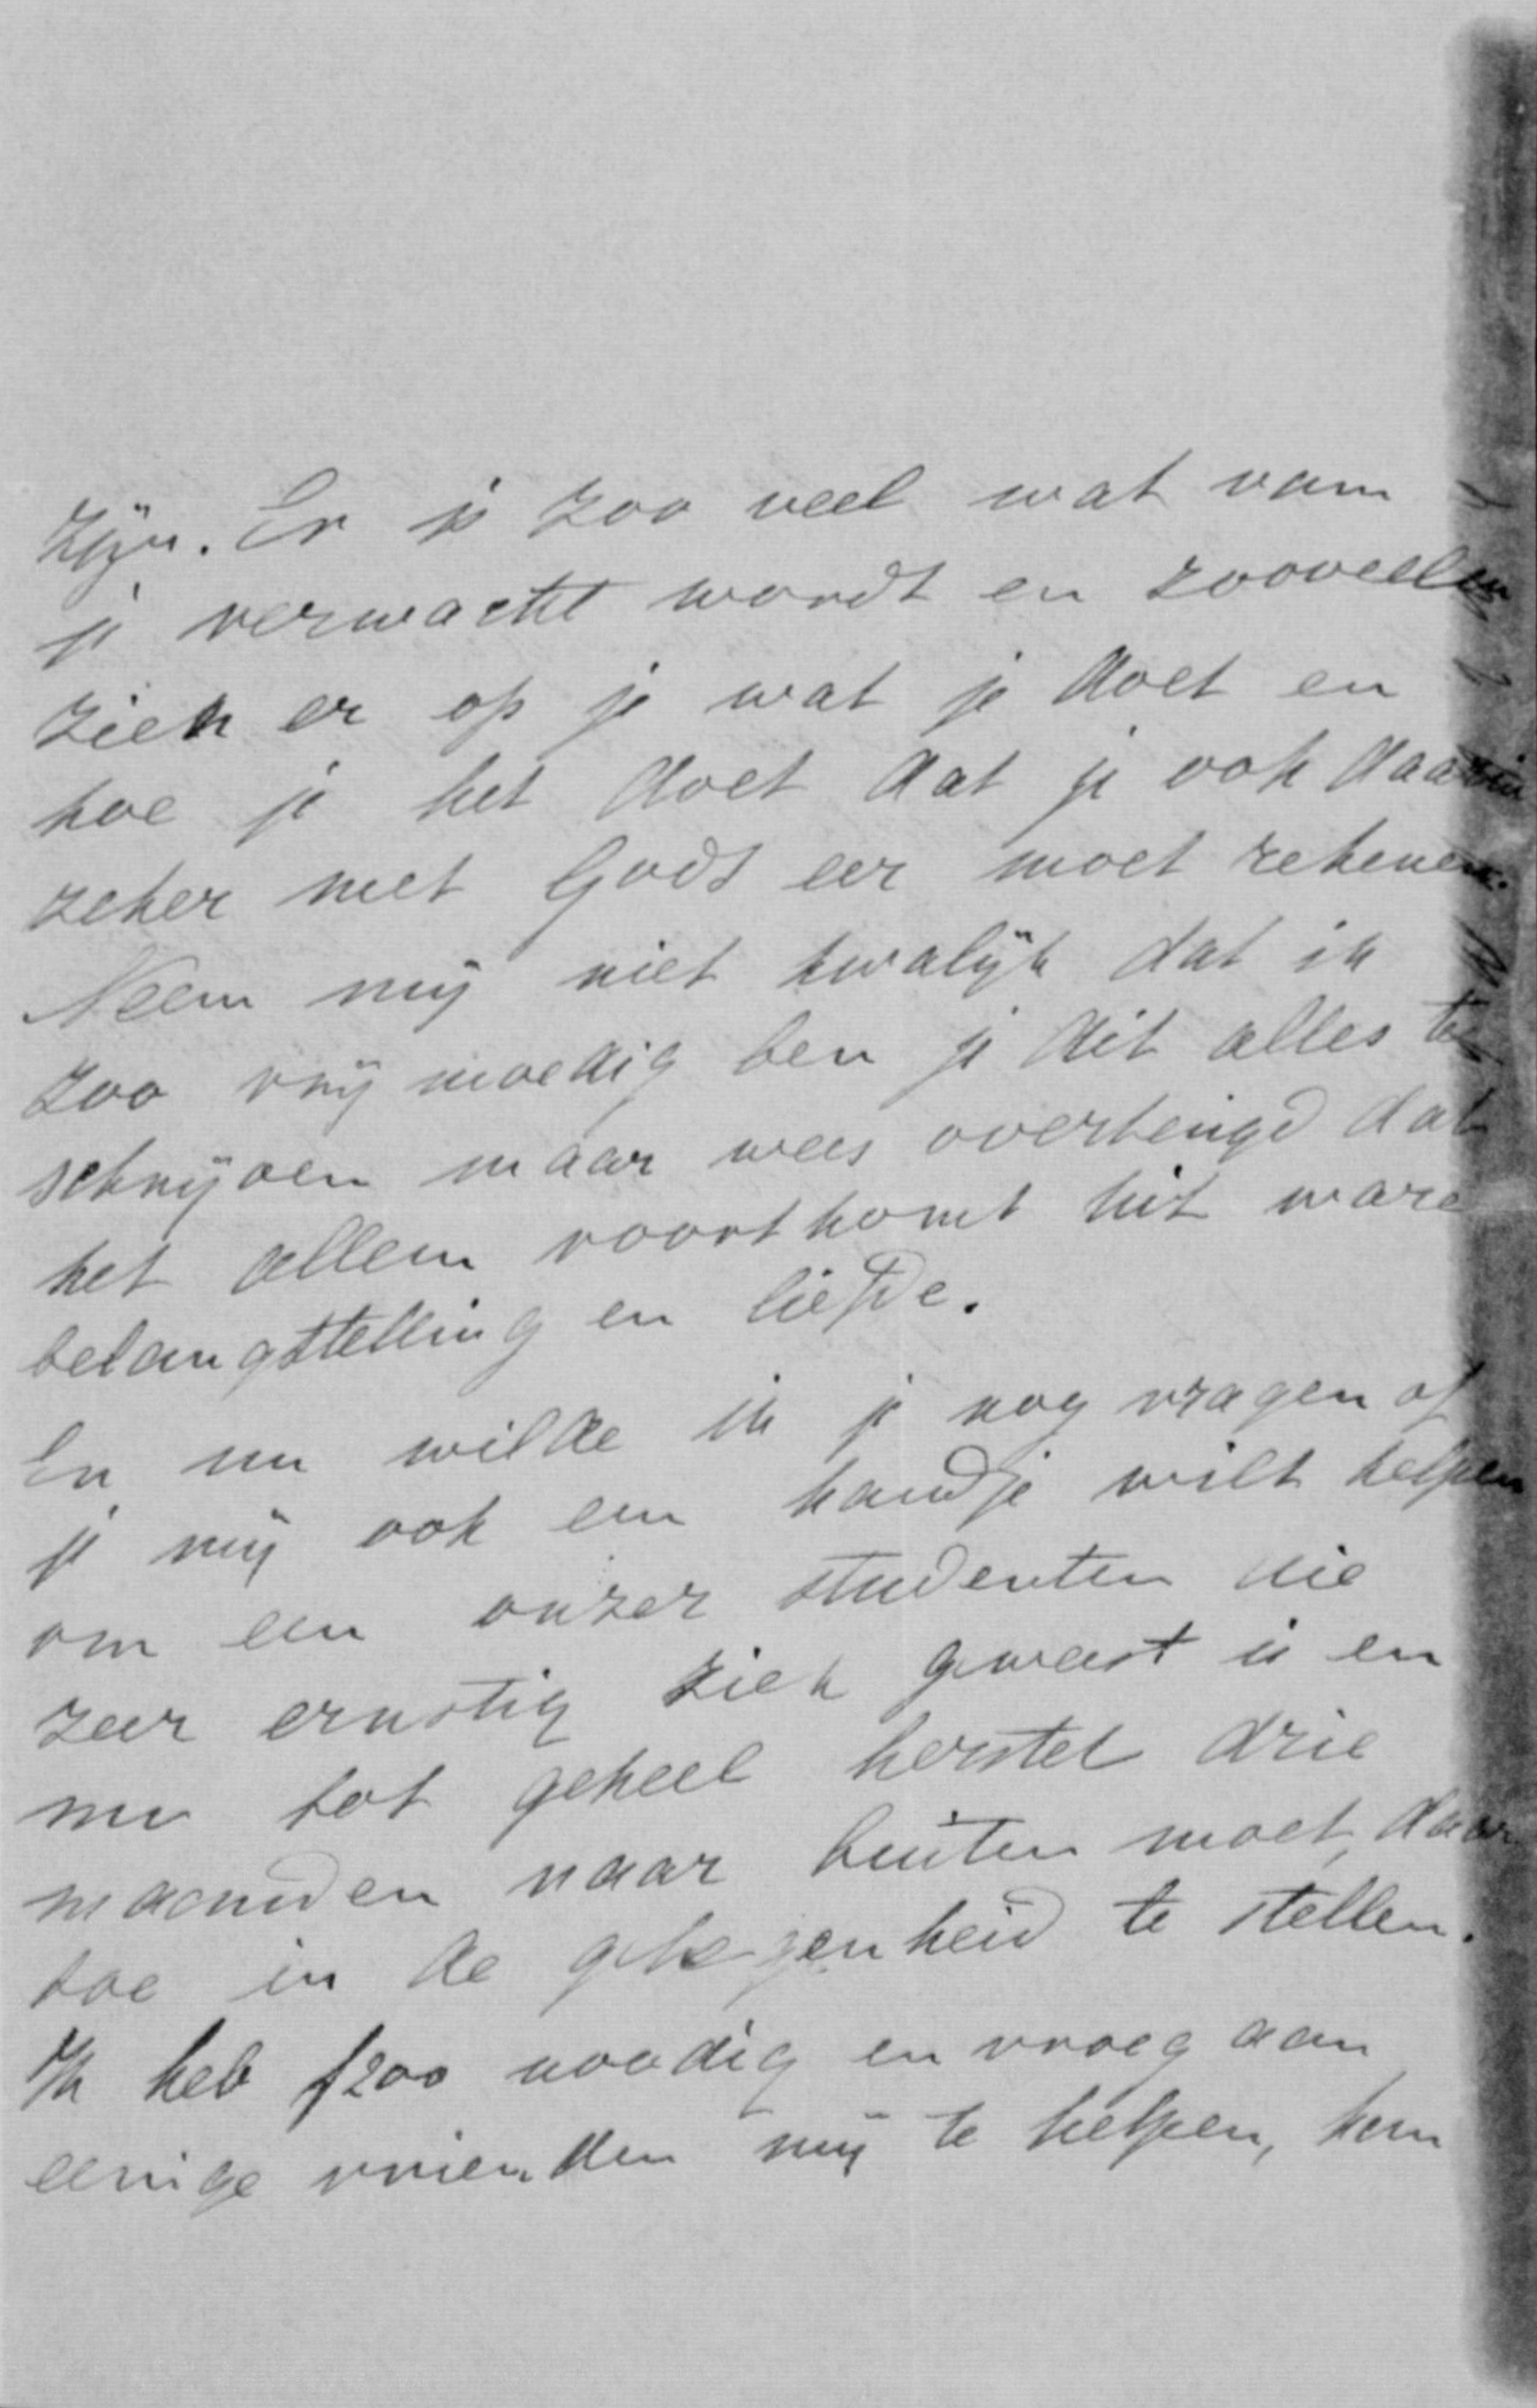 zijn. Er is zoo veel wat van
je verwacht wordt en zooveelen
zien er op je wat je doet en
hoe je het doet dat je ook daarin
zeker met Gods eer moet rekenen.
Neem mij niet kwalijk dat ik
zoo vrijmoedig ben je dit alles te
schrijven maar wees overtuigd dat
het alleen voortkomt uit ware
belangstelling en liefde.
En nu wilde ik je nog vragen of
je mij ook een handje wilt helpen
om een onzer studenten die
zeer ernstig ziek geweest is en
nu tot geheel herstel drie
maanden naar buiten moet, daar
toe in de gelegenheid te stellen.
Ik heb f200 noodig en vroeg aan
eenige vrienden mij te helpen, kun